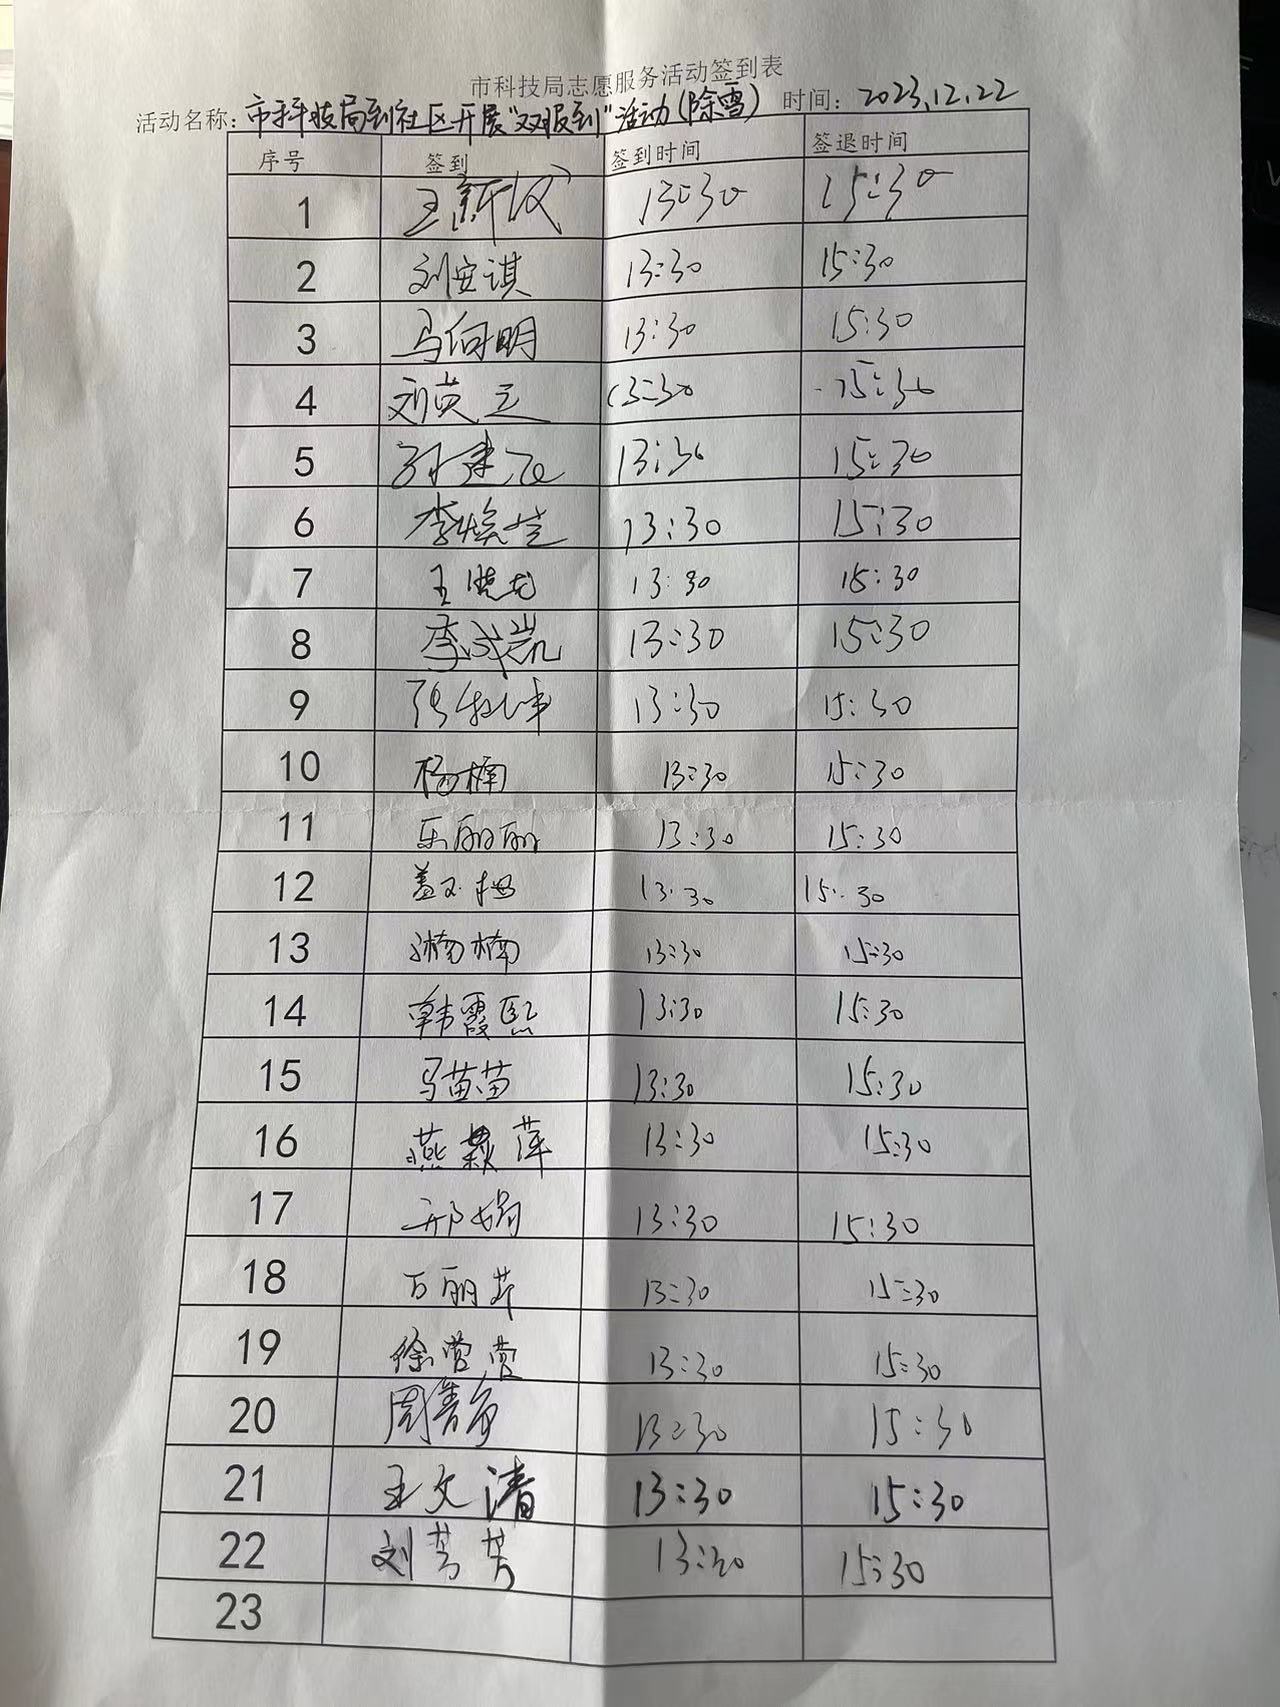 市科技局志愿服务活动签到表
活动名称：市科技局到社区开展"双报到"活动(除雪) 时间：2023.12.22
序号 签到 签到时间 签退时间
1 13:30 15:30
2 刘安淇 13:30 15:30
3 马向明 13:30 15:30
4 13:30 15:30
5 13:30 15:30
6 13:30 15:30
7 王晓龙 13:30 15:30
8 李成凯 13:30 15:30
9 13:30 15:30
10 杨楠 13:30 15:30
11 乐丽丽 13:30 15:30
12 13:30 15:30
13 13:30 15:30
14 韩霞熙 13:30 15:30
15 马苗苗 13:30 15:30
16 13:30 15:30
17 邢娟 13:30 15:30
18 万丽芹 13:30 15:30
19 徐营营 13:30 15:30
20 13:30 15:30
21 王文清 13:30 15:30
22 刘芳芳 13:30 15:30
23